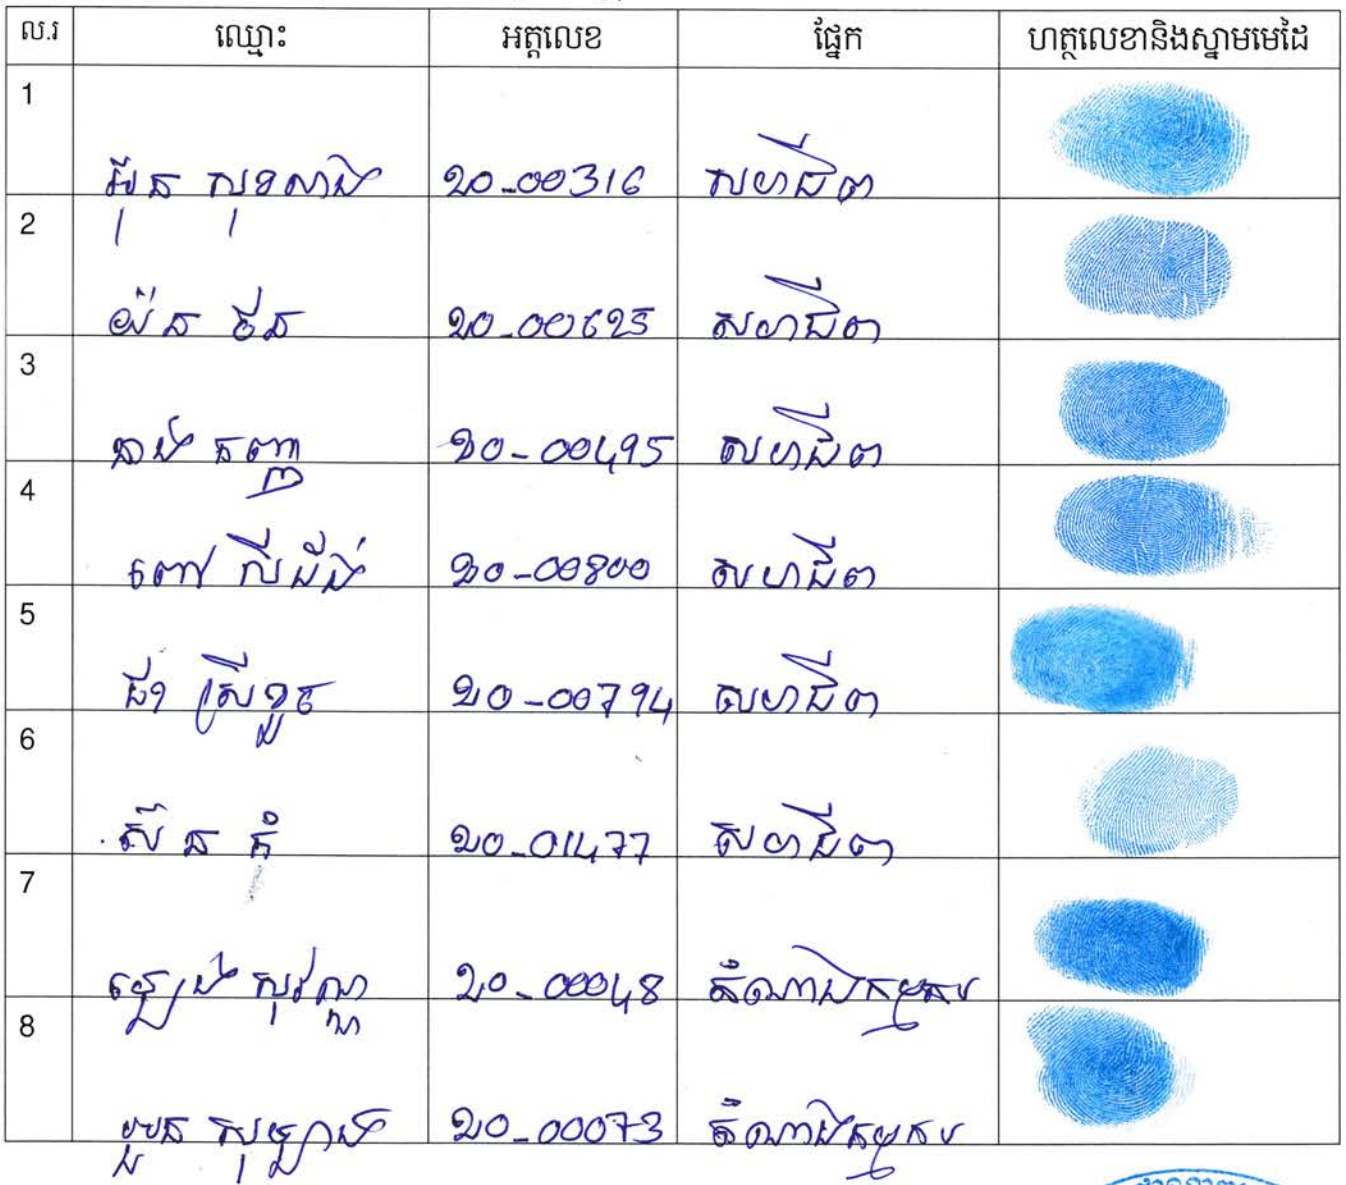 ល.រ ឈ្មោះ អត្តលេខ ផ្នែក ហត្ថលេខានិងស្នាមមេដៃ
1 អ៊ុន សុខលាង 20-00316 សហជីព
2 យ៉ន ថន 20-00625 សហជីព
3 នាង កញ្ញា 20-00495 សហជីព
4 ពៅ ស៊ីដង់ 20-00800 សហជីព
5 ជា ស្រីខួច 20-00794 សហជីព
6 ស៊ន គុំ 20-01477 សហជីព
7 ឡេង សុវណ្ណ 20-00048 តំណាងកម្មករ
8 សុឡាង 20-00073 តំណាងកម្មករ